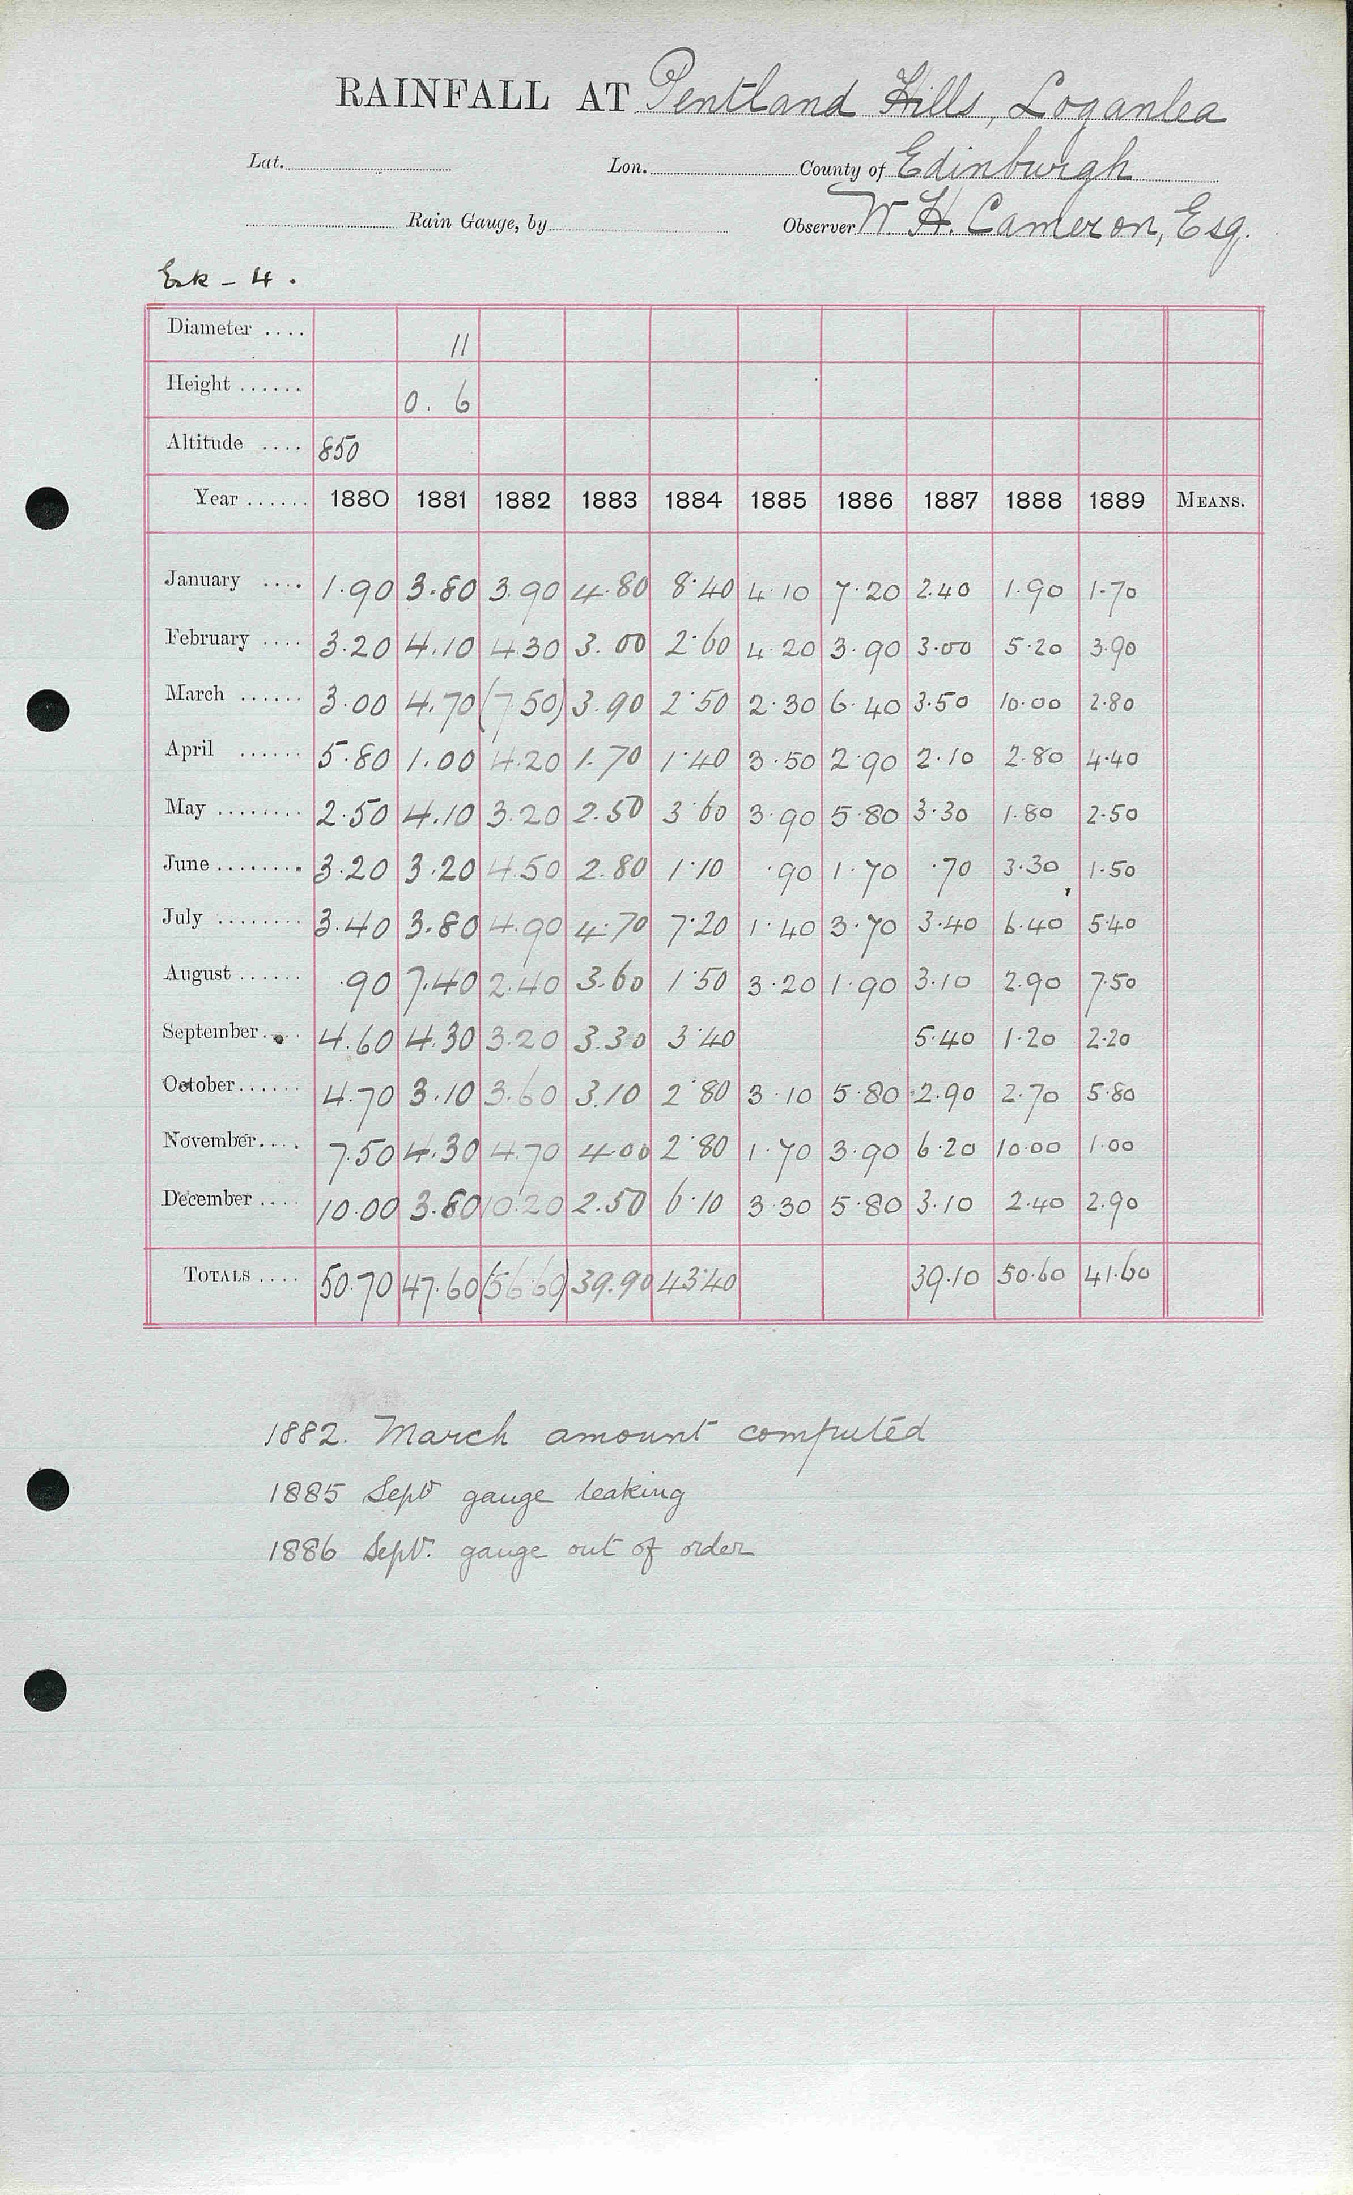 RAINFALL AT Pentland Hills, Loganlea
Lat. Lon. County of Edinburgh
Rain Gauge, by Observer W. H. Cameron, Esq.
Esk - 4.
Diameter .... 11
Height ...... 0. 6
Altitude .... 850
Year ...... 1880 1881 1882 1883 1884 1885 1886 1887 1888 1889 MEANS.
January .... 1.90 3.80 3.90 4.80 8.40 4.10 7.20 2.40 1.90 1.70
February .... 3.20 4.10 4.30 3.00 2.60 4.20 3.90 3.00 5.20 3.90
March ...... 3.00 4.70 (7.50) 3.90 2.50 2.30 6.40 3.50 10.00 2.80
April ...... 5.80 1.00 4.20 1.70 1.40 3.50 2.90 2.10 2.80 4.40
May ........ 2.50 4.10 3.20 2.50 3.60 3.90 5.80 3.30 1.80 2.50
June ........ 3.20 3.20 4.50 2.80 1.10 .90 1.70 .70 3.30 1.50
July ........ 3.40 3.80 4.90 4.70 7.20 1.40 3.70 3.40 6.40 5.40
August ...... .90 7.40 2.40 3.60 1.50 3.20 1.90 3.10 2.90 7.50
September.... 4.60 4.30 3.20 3.30 3.40 5.40 1.20 2.20
October...... 4.70 3.10 3.60 3.10 2.80 3.10 5.80 2.90 2.70 5.80
November.... 7.50 4.30 4.70 4.00 2.80 1.70 3.90 6.20 10.00 1.00
December .... 10.00 3.80 10.20 2.50 6.10 3.30 5.80 3.10 2.40 2.90
TOTALS .... 50.70 47.60 (56.60) 39.90 43.40 39.10 50.60 41.60
1882. March amount computed
1885 Sept. gauge leaking
1886 Sept. gauge out of order